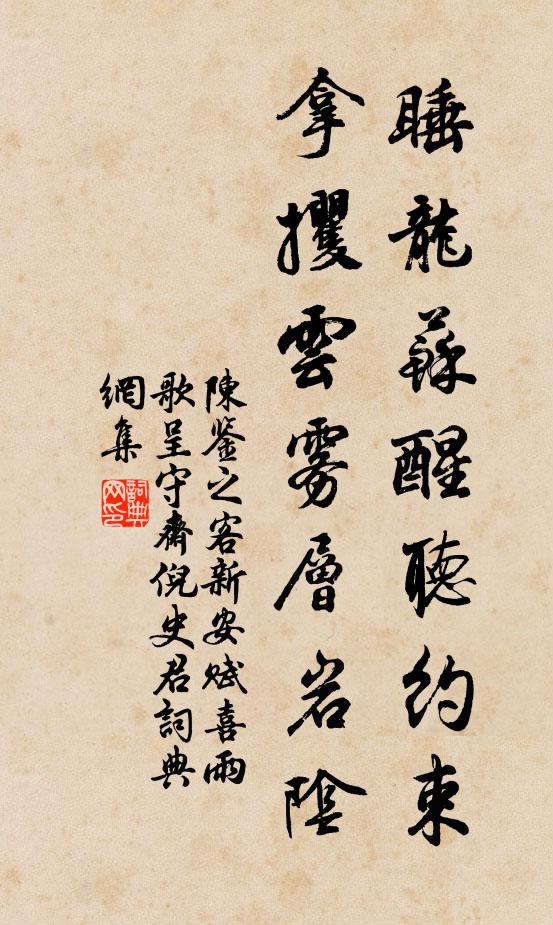 睡龍蘇醒聽約束
拿攫雲霧層岩陰
陳鉴之客新安賦喜雨
歌呈守齋倪史君詞典
網集
詞典
网印